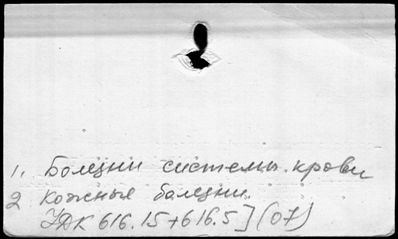 1. Болезни системы крови
2 Кожные балезни.
УДК 616.15+616.5](07)